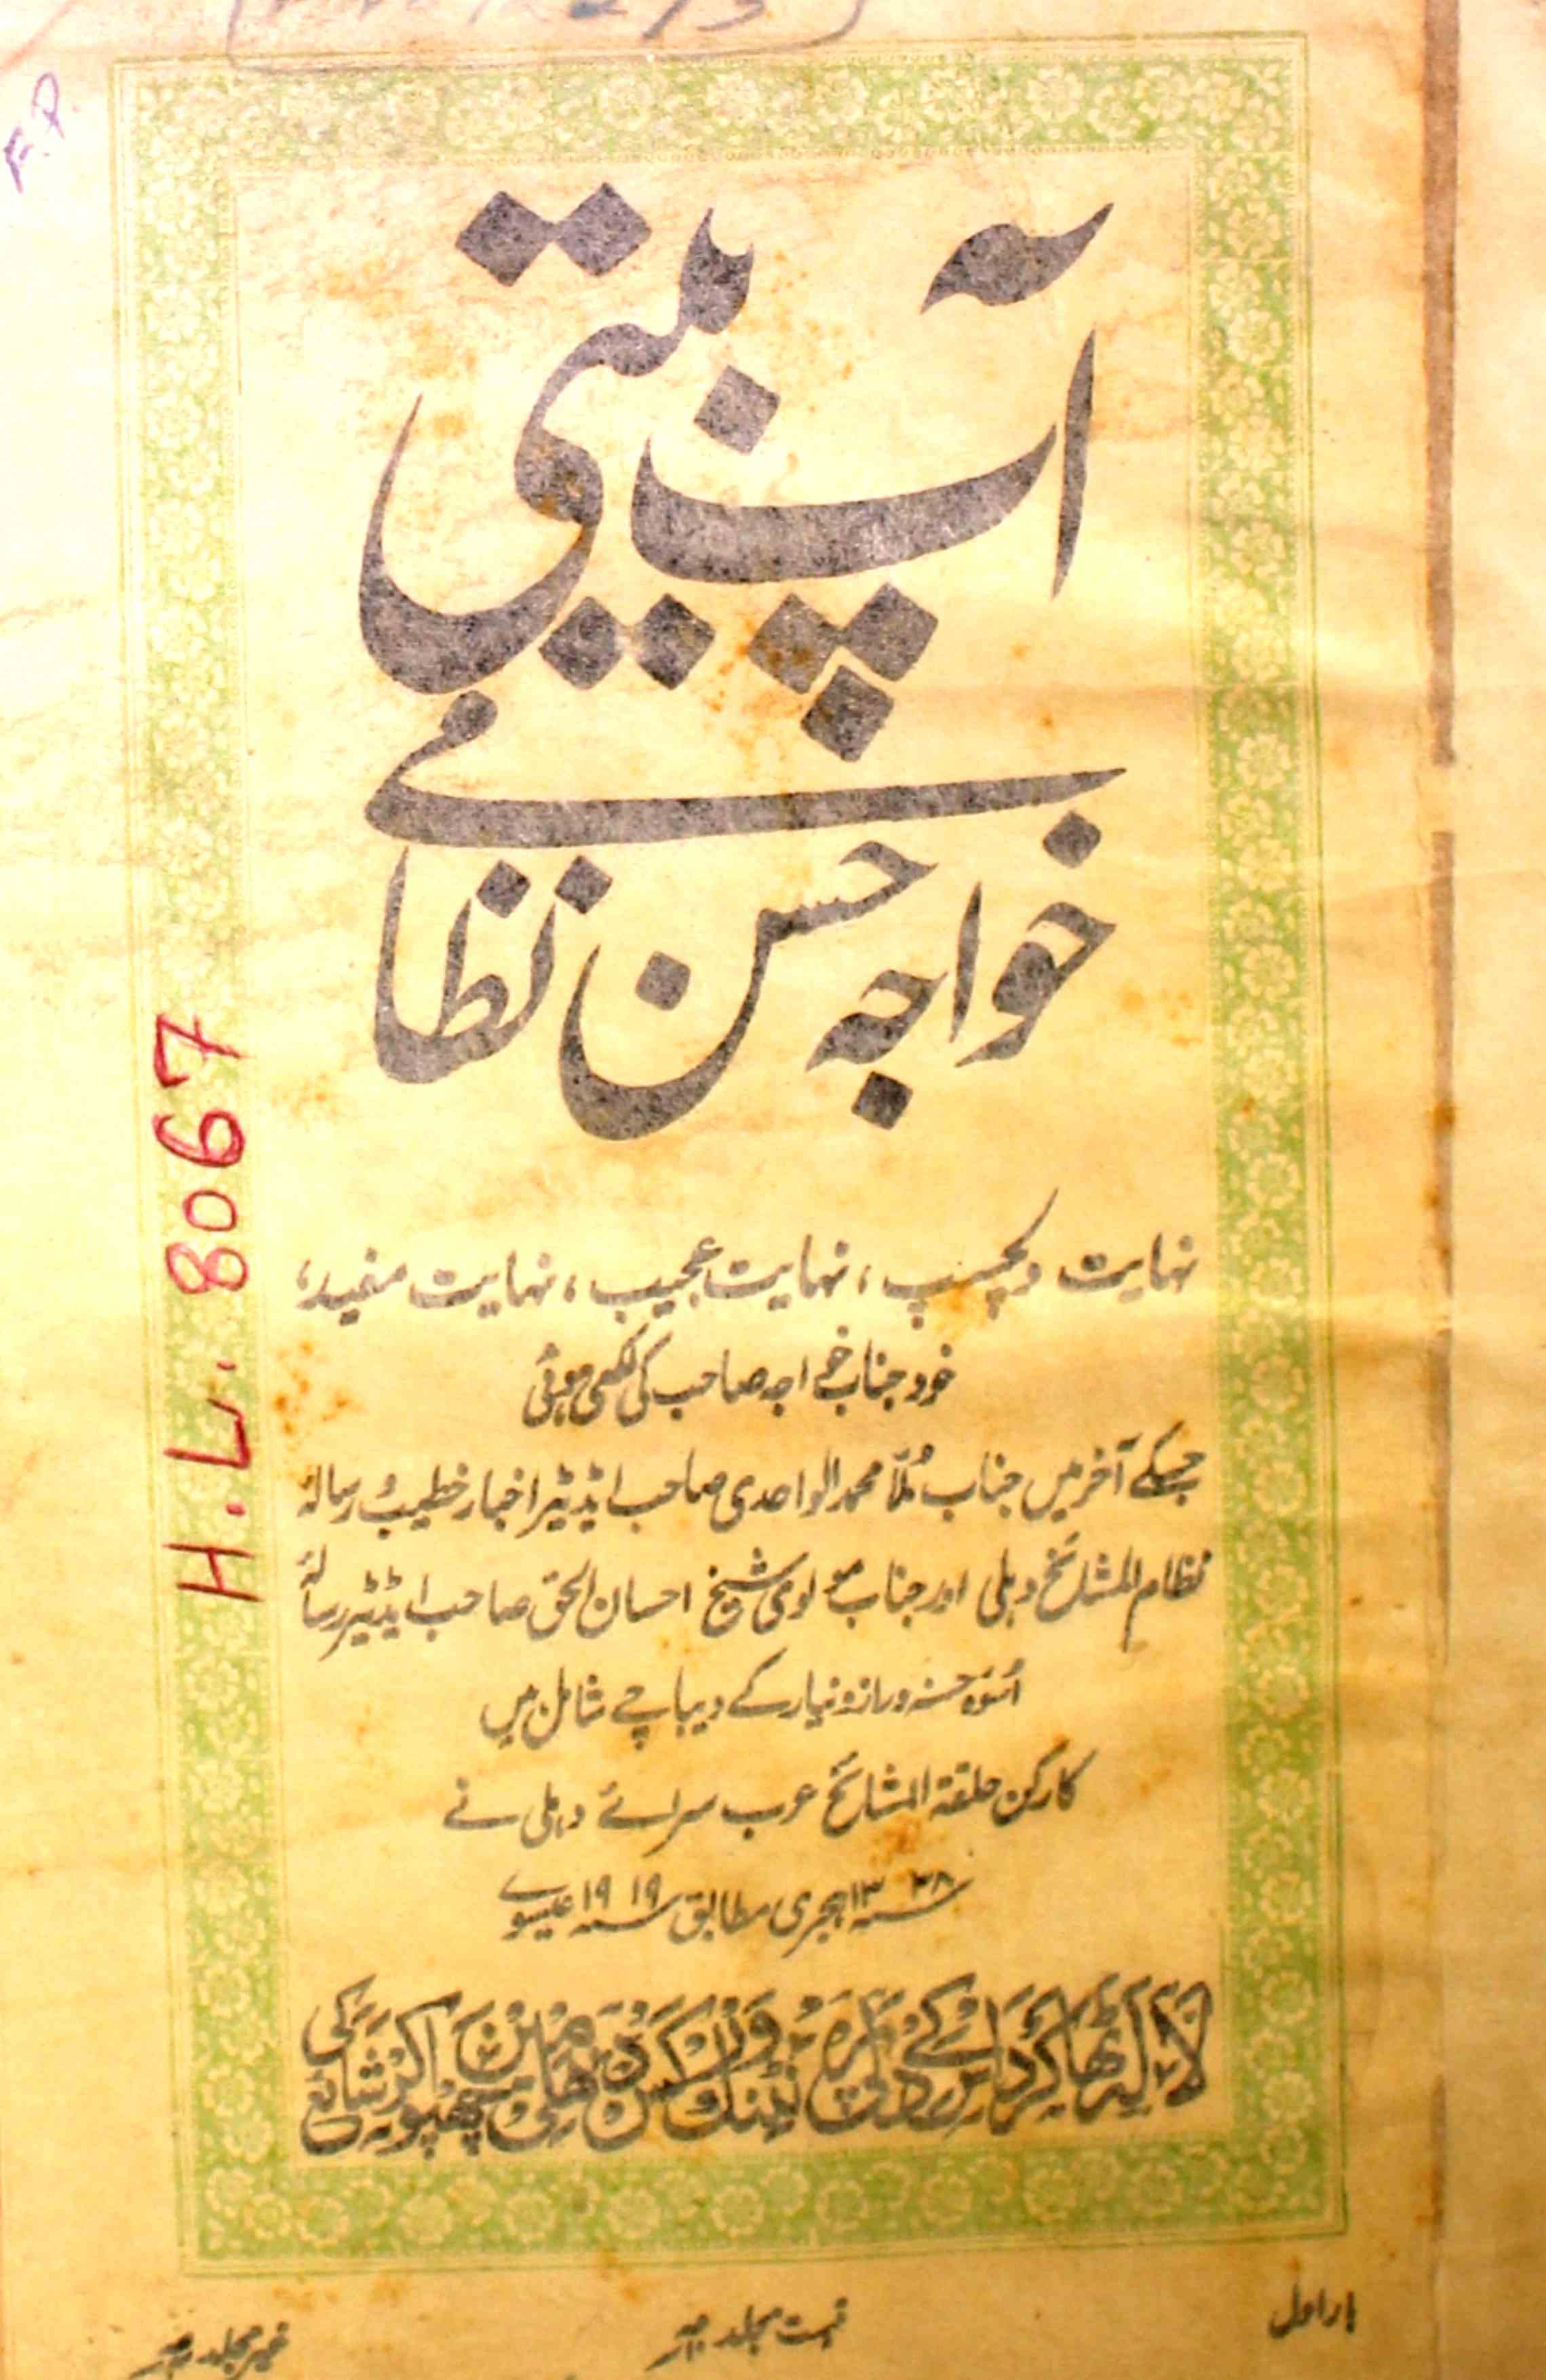 F.P.
آپ بیتی
خواجہ حسن نظامی
نہایت دلچسپ ، نہایت عجیب ، نہایت مفید ،
خود جناب خواجہ صاحب کی لکھی ہوئی
جسکے آخر میں جناب مُلّا محمد الواحدی صاحب ایڈیٹر اخبار خطیب و رسالہ
نظام المشائخ دہلی اور جناب مولوی شیخ احسان الحق صاحب ایڈیٹر رسالہ
اُسوۂ حسنہ و راز و نیاز کے دیباچے شامل ہیں
کارکن حلقۃ المشائخ عرب سرائے دہلی نے
سنہ ۱۳۳۸ ہجری مطابق سنہ ۱۹۱۹ عیسوی
لالہ ٹھاکرداس کے دلی پرنٹنگ ورکس دہلی میں چھپوا کر شائع کی
بار اول
قیمت مجلد
غیر مجلد
H.L. 8067